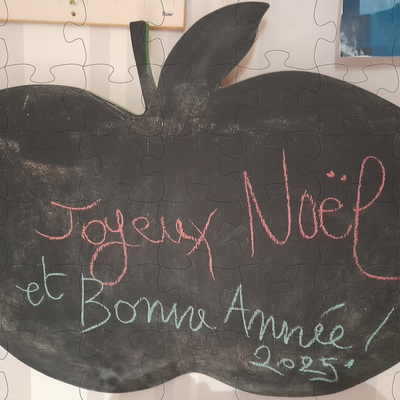 Joyeux Noël
et Bonne Année !
2025.